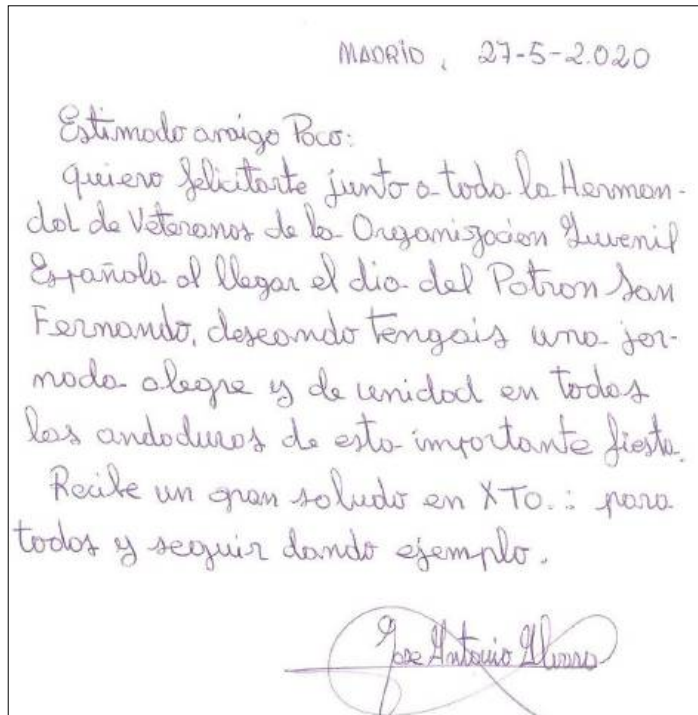 MADRID, 27-5-2.020
Estimado amigo Paco:
quiero felicitarte junto a toda la Herman-
dad de Veteranos de la Organización Juvenil
Española al llegar el dia del Patron San
Fernando, deseando tengais una jor-
nada alegre y de unidad en todas
las andaduras de esta importante fiesta.
Recibe un gran saludo en XTO.: para
todos y seguir dando ejemplo.
Jose Antonio